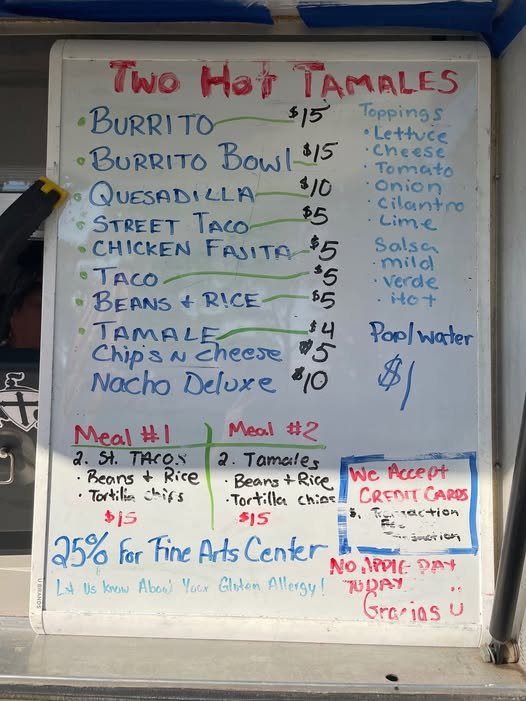 Two Hot TAMALES
• BURRITO $15
• BURRITO BOWL $15
• QUESADILLA $10
• STREET TACO $5
• CHICKEN FAJITA $5
• TACO $5
• BEANS + RICE $5
• TAMALE $4
Chips N cheese $5
Nacho Deluxe $10
Toppings
• Lettuce
• Cheese
• Tomato
• onion
• Cilantro
• Lime
Salsa
• mild
• verde
• Hot
Pop/water
$1
Meal #1
2. St. TACOS
• Beans + Rice
• Tortilla chips
$15
Meal #2
2. Tamales
• Beans + Rice
• Tortilla chips
$15
We Accept
CREDIT CARDS
25% For Fine Arts Center
Let Us Know About Your Gluten Allergy!
NO APPLE PAY
TODAY
Gracias U
U BRANDS